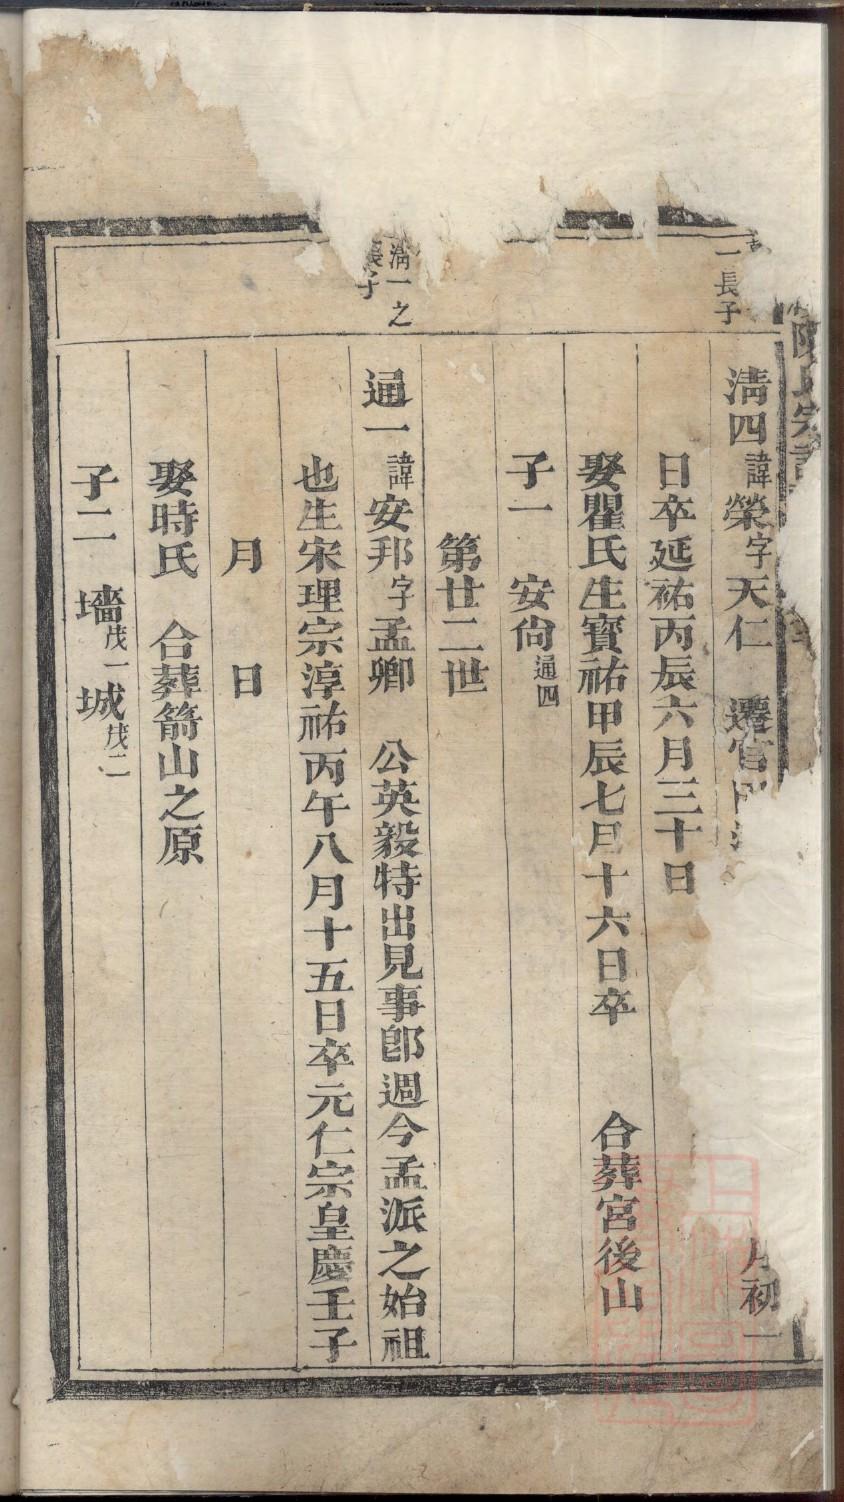 陳氏宗譜
一長子
清四諱榮字天仁 遷官 月初一
日卒延祐丙辰六月三十日
娶瞿氏生寳祐甲辰七月十六日卒 合葬宮後山
子一 安尙通四
第廿二世
清一之
長子
通一諱安邦字孟卿 公英毅特出見事卽週今孟派之始祖
也生宋理宗淳祐丙午八月十五日卒元仁宗皇慶壬子
月 日
娶時氏 合葬箭山之原
子二 墻茂一城茂二